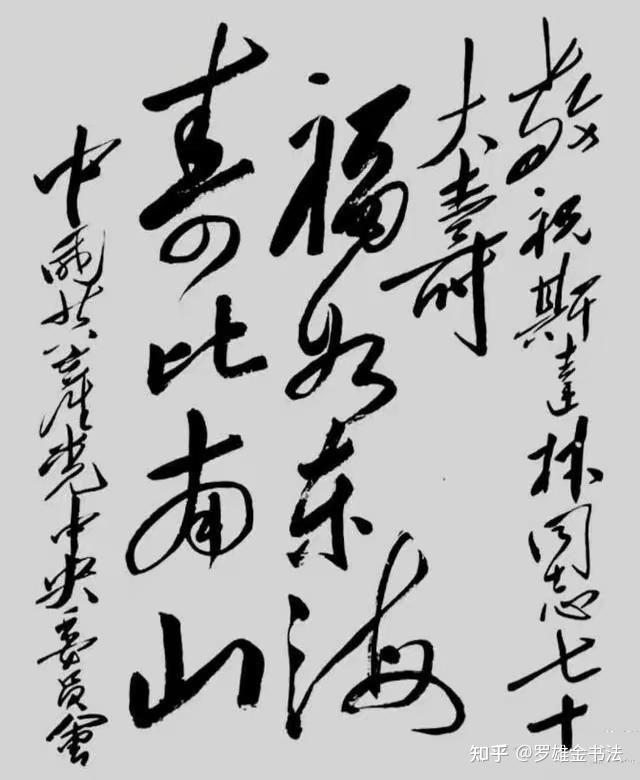 敬祝斯達林同志七十
大壽
福如东海
寿比南山
中國共產党中央委員會
知乎 @罗雄金书法